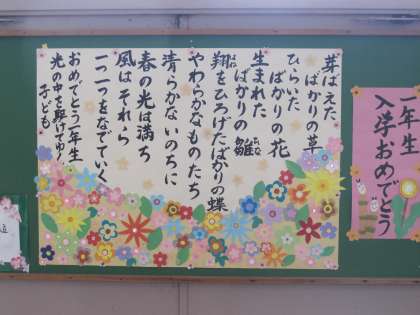 芽ばえた
ばかりの草
ひらいた
ばかりの花
生まれた
ばかりの雛
ひな
翔をひろげたばかりの蝶
はね
やわらかなものたち
清らかないのちに
春の光は満ち
風はそれら
一つ一つをなでていく
おめでとう一年生
光の中を駆けてゆく
子ども
一年生
入学おめでとう